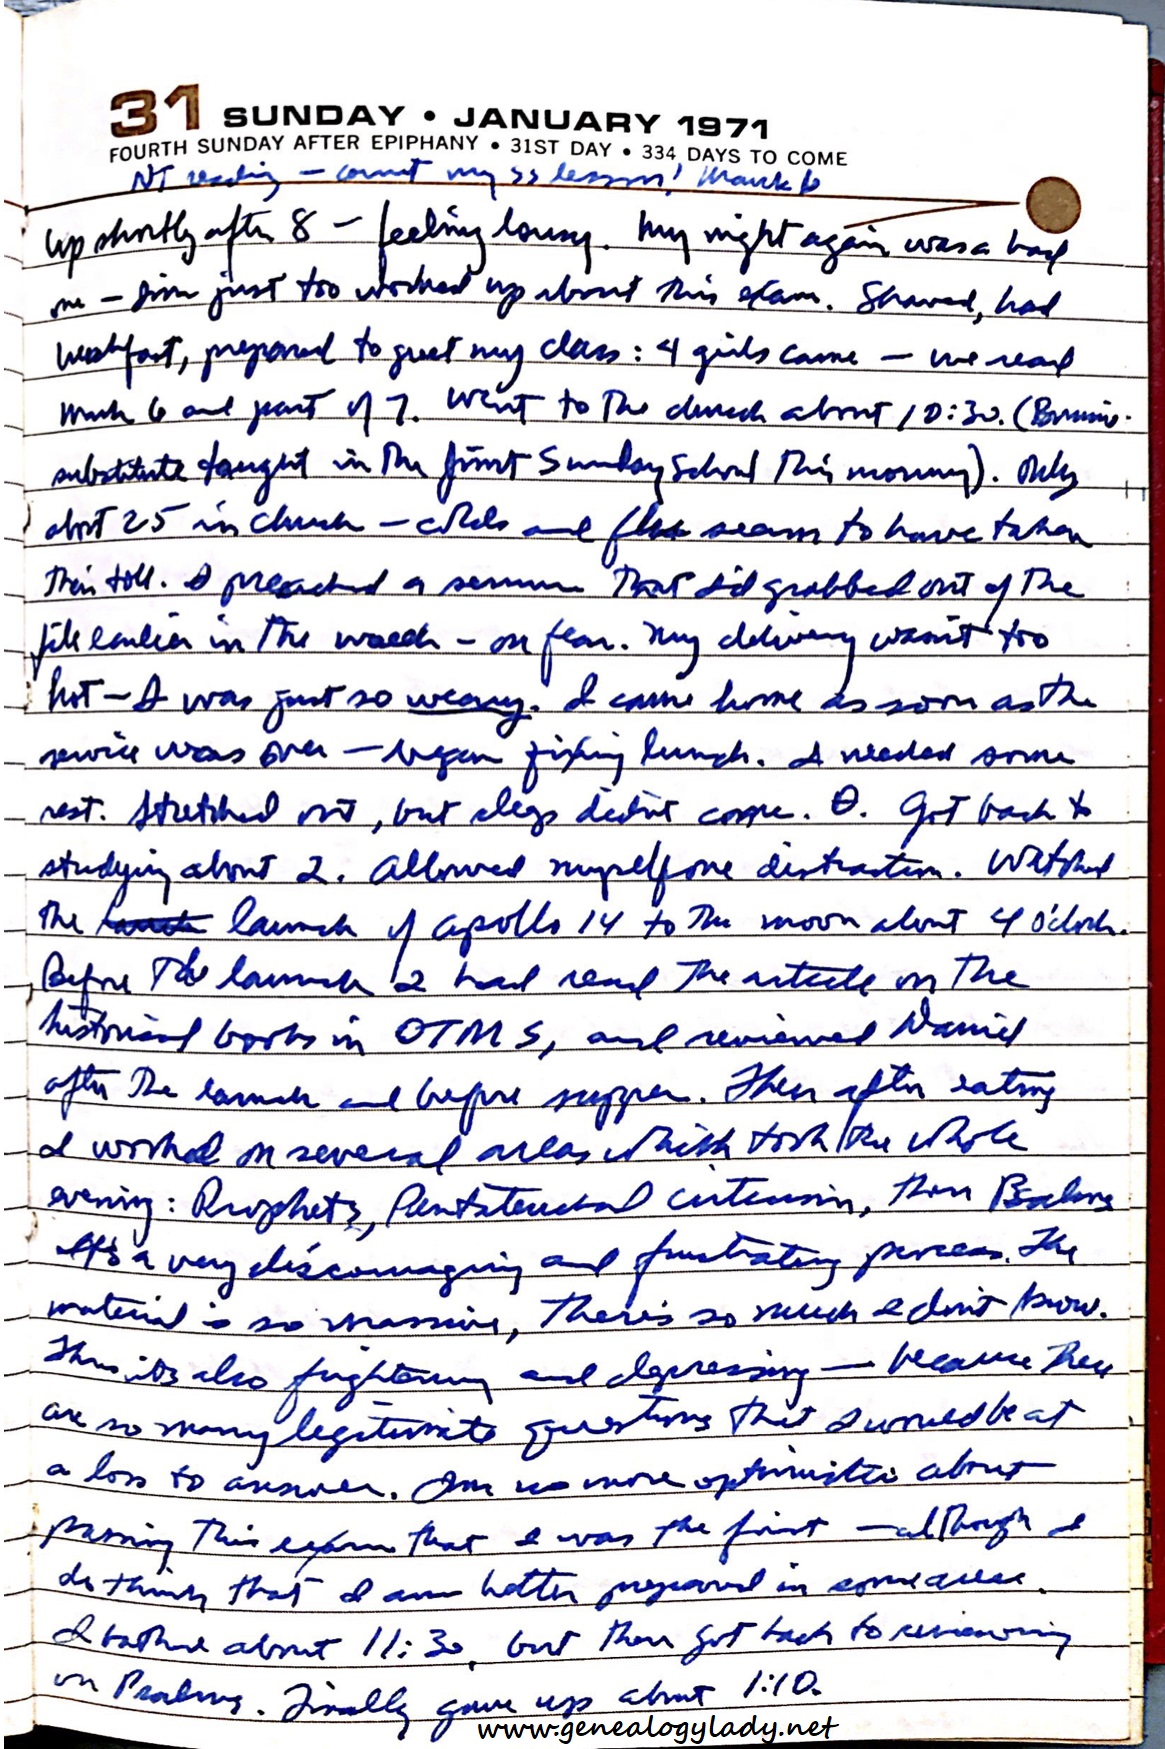 31 SUNDAY • JANUARY 1971
FOURTH SUNDAY AFTER EPIPHANY • 31ST DAY • 334 DAYS TO COME
NT reading – count my SS lesson! Mark 6
Up shortly after 8 – feeling lousy. My night again was a bad
one – I'm just too worked up about this exam. Shaved, had
breakfast, prepared to greet my class: 4 girls came – we read
Mark 6 and part of 7. Went to the church about 10:30. (
substitute taught in the first Sunday School this morning). Only
about 25 in church – colds and flu seem to have taken
their toll. I preached a sermon that I'd grabbed out of the
file earlier in the week – on fear. My delivery wasn't too
hot – I was just so weary. I came home as soon as the
service was over – began fixing lunch. I needed some
rest. Stretched out, but sleep didn't come. θ. Got back to
studying about 2. Allowed myself one distraction. Watched
the launch of Apollo 14 to the moon about 4 o'clock.
Before the launch I had read the article on the
historical books in OTMS, and reviewed Daniel
after the launch and before supper. Then after eating
I worked on several areas which took the whole
evening: Prophets, Pentateuchal criticism, then Psalms
It's a very discouraging and frustrating process. The
material is so massive, there's so much I don't know.
Thus it's also frightening and depressing – because there
are so many legitimate questions that I would be at
a loss to answer. I'm no more optimistic about
passing this exam that I was the first – although I
do think that I am better prepared in some areas.
I bathed about 11:30, but then got back to reviewing
on Psalms. Finally gave up about 1:10.
www.genealogylady.net